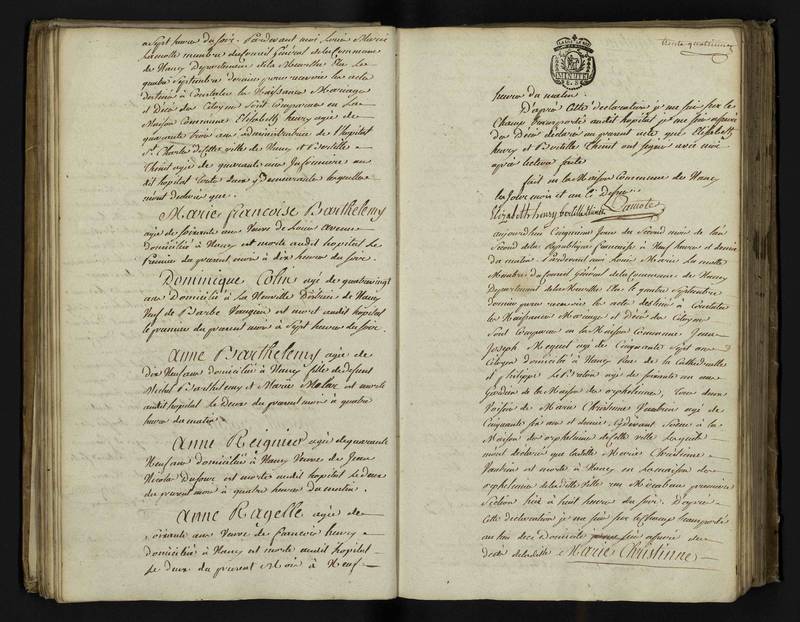 a Sept heure du soir. Pardevant moi Louis Marie
Lamotte membre du Conseil Général de la Commune
de Nancy Departement de la Meurthe Elu le
quatre Septembre dernier pour recevoir les actes
destinés à Constater la Naissance Mariage
et Décès des Citoyens Sont Comparues en la
Maison Commune Elisabeth henry agée de
quarante trois ans administratrice de l'hopital
St. Charles de cette ville de Nancy et
agée de quarante ans Infirmiere au
dit hopital toute deux y demeurante lesquelles
m'ont declaré que
Marie françoise Barthelemy
agée de soixante ans Veuve de Louis
domiciliée à Nancy est morte audit hopital le
Premier du present mois à dix heures du soir.
Dominique Colin agé de quatrevingt
ans Domicilié à La Neuville District de Nancy
Veuf de Barbe est mort audit hopital
le premier du present mois à Sept heures du soir.
Anne Barthelemy agée de
dix Neuf ans domiciliée à Nancy fille de defunt
Nicolas Barthelemy et Marie est morte
audit hopital le Deux du present mois à quatre
heures du matin
Anne Reignier agée de quarante
Neuf ans domiciliée à Nancy Veuve de Jean
Nicolas Dufour est morte audit hopital le deux
du present mois à quatre heures du matin.
Anne Ragelle agée de
soixante ans Veuve de francois henry
domiciliée à Nancy est morte audit hopital
le deux du present Mois à Neuf
trente quatrieme
heures du matin.
D'après cette declaration je me suis sur le
Champ transporté audit hopital je me suis assuré
des Décès declarés au present acte que Elisabeth
henry et ont signé avec moi
après lecture faite
fait en la Maison Commune de Nancy
les Jour mois et an Ci Dessus
Elizabeth henry Lamotte
aujourdhui Cinquieme Jour du Second mois de l'an
Second de la Republique francaise à Neuf heures et demie
du matin. Pardevant moi Louis Marie Lamotte
Membre du Conseil Général de la Commune de Nancy
Departement de la Meurthe Elu le quatre Septembre
dernier pour recevoir les actes destinés à Constater
la Naissance Mariage et Décès des Citoyens
Sont Comparus en la Maison Commune Jean
Joseph agé de Cinquante Sept ans
Citoyen domicilié à Nancy Rue de la Cathedralle
et Philippe agé de soixante un ans
Gardien de la Maison des orphelines, tous deux
Voisins de Marie Christinne Vautrin agée de
Cinquante six ans et demie, Cydevant Soeur à la
Maison des orphelines de cette ville Lesquels
m'ont declaré que ladite Marie Christinne
Vautrin est morte à Nancy en la maison des
orphelines de cette Ville rue Mirabeau premiere
Section hier à huit heures du soir. D'après
Cette declaration je me suis sur le champ transporté
au lieu de ce Domicile me suis assuré du
Decès de ladite Marie Christinne